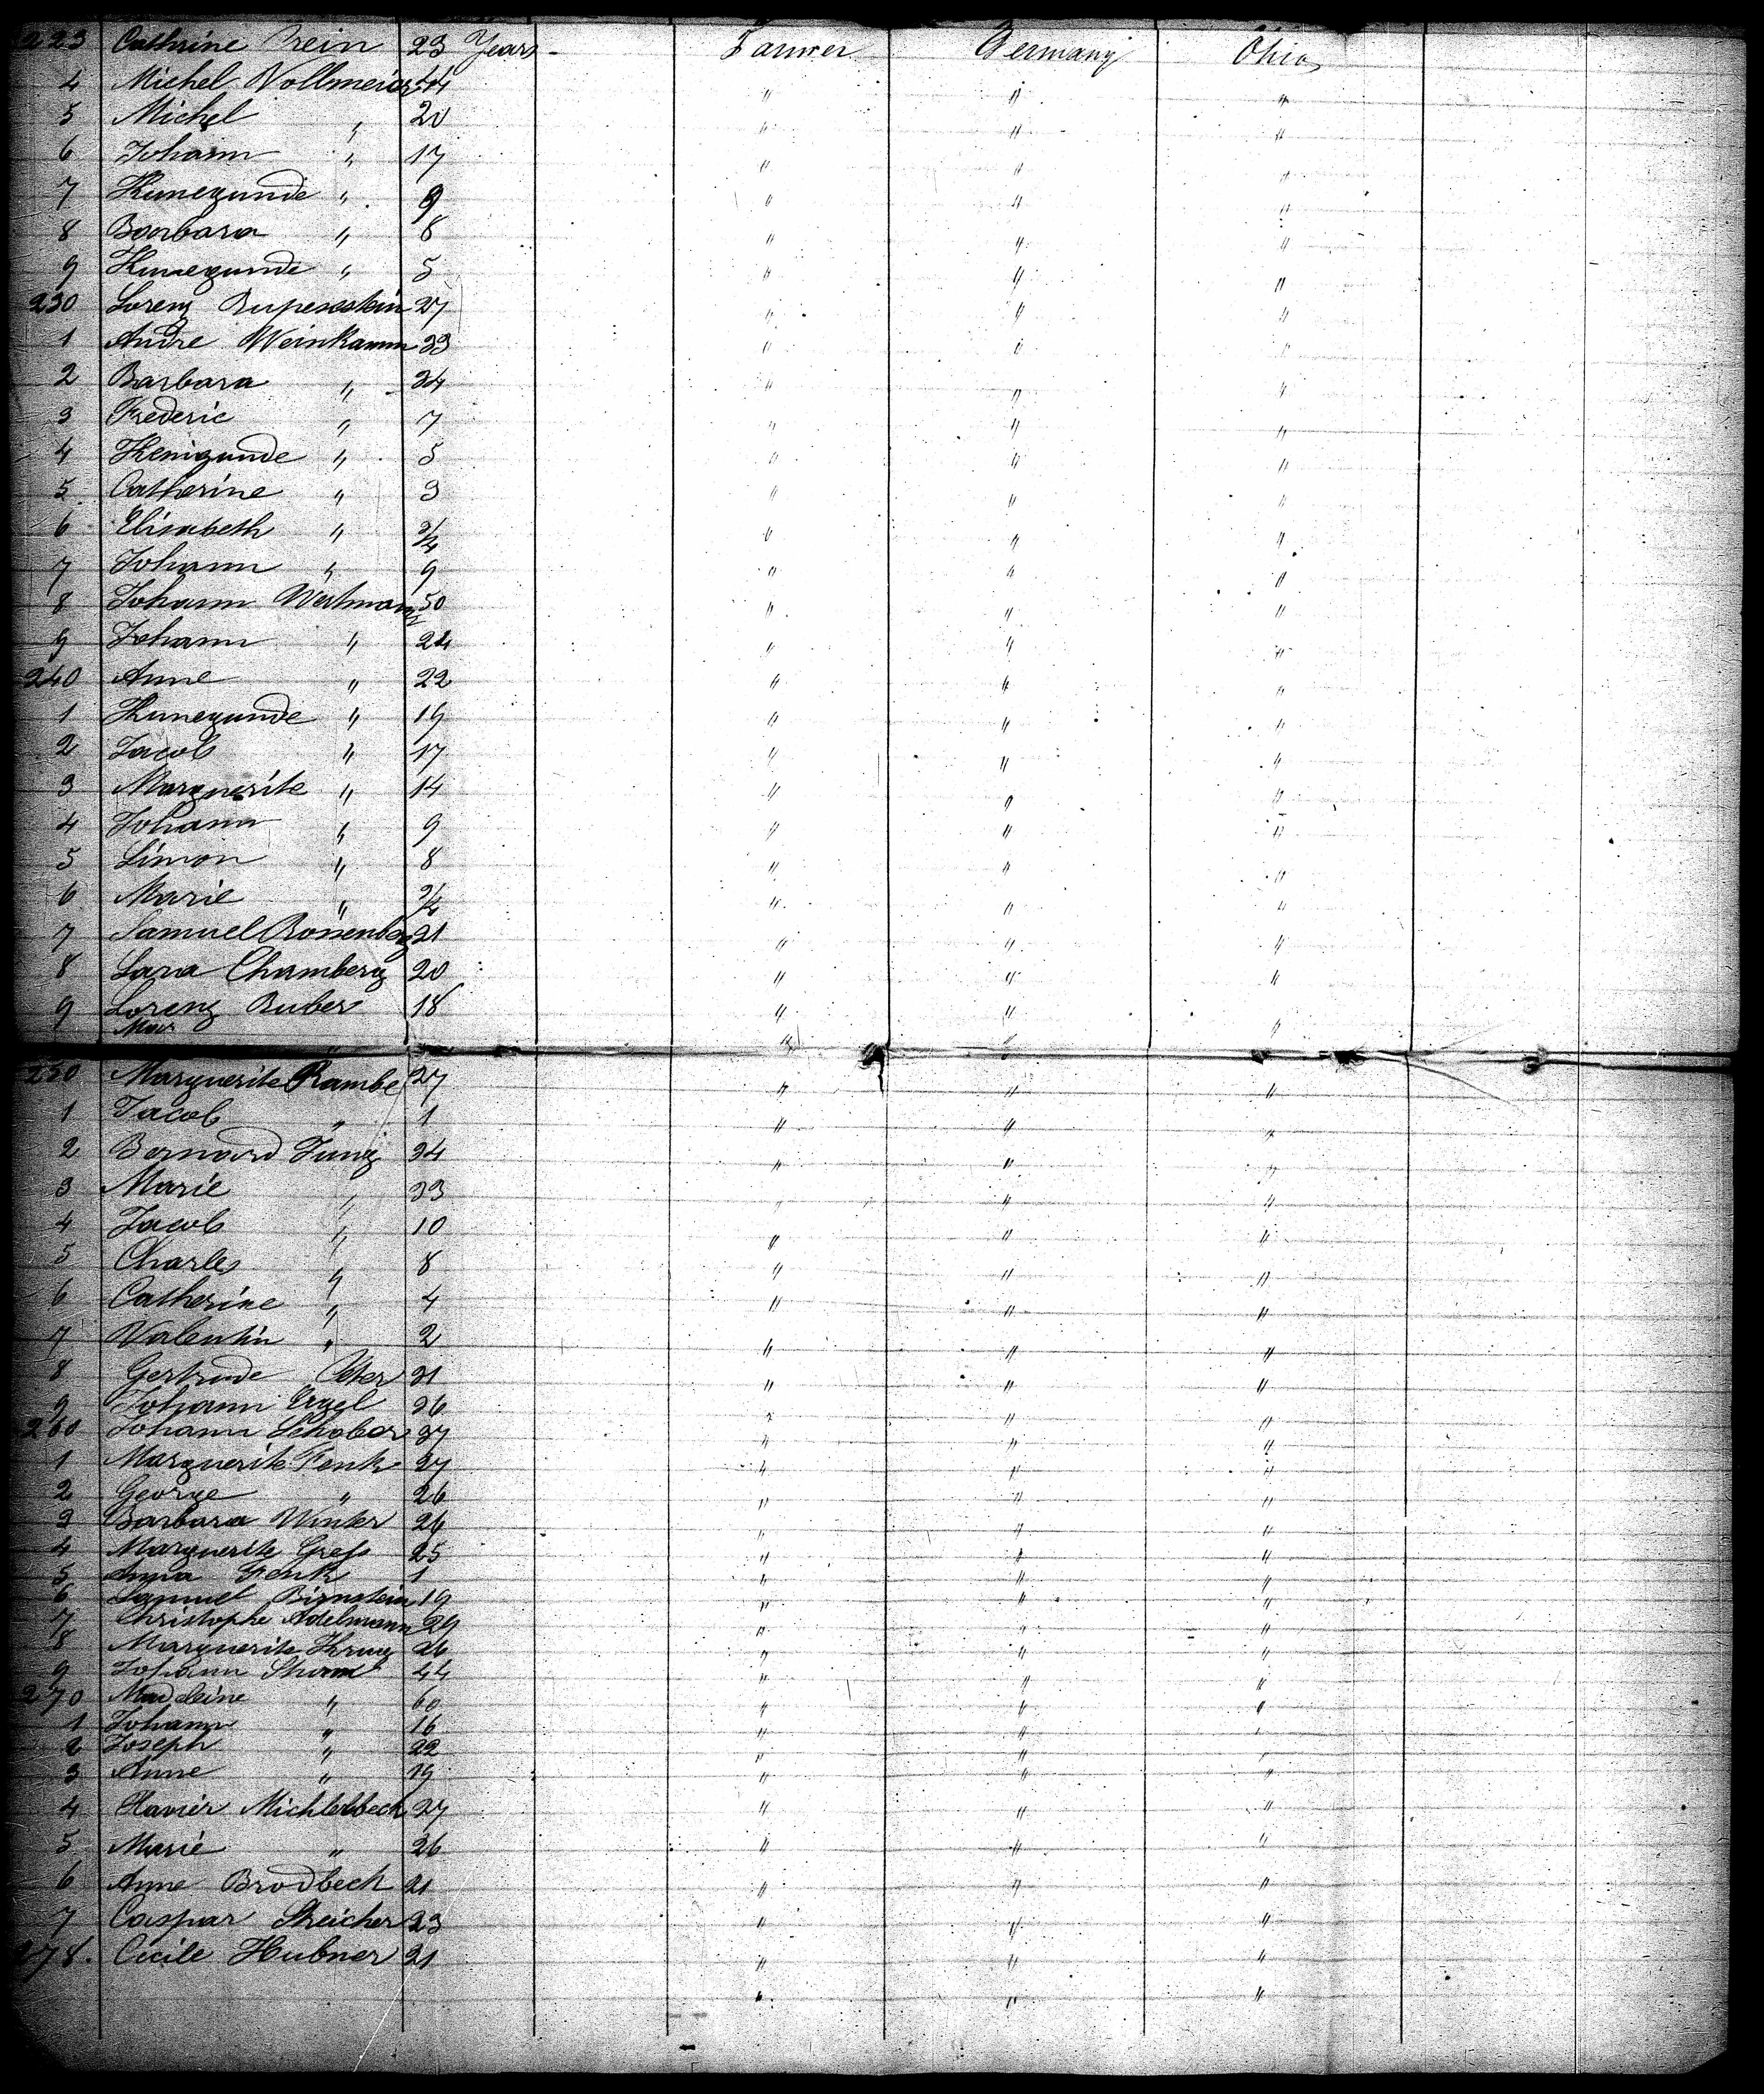 223 Cathrine Prein 23 Years Farmer Germany Ohio
4 Michel Vollmeier 44 " " "
5 Michel " 20 " " "
6 Johann " 17 " " "
7 Kunegunde " 9 " " "
8 Barbara " 8 " " "
9 Kunegunde " 5 " " "
230 Lorenz 27 " " "
1 Andre Weinkamm 33 " " "
2 Barbara " 34 " " "
3 Frederic " 7 " " "
4 Kenigunde " 5 " " "
5 Catherine " 3 " " "
6 Elisabeth " 3/4 " " "
7 Johann " 9 " " "
8 Johann Westmann 50 " " "
9 Johann " 24 " " "
240 Anne " 22 " " "
1 Kunegunde " 19 " " "
2 Jacob " 17 " " "
3 Marguerite " 14 " " "
4 Johann " 9 " " "
5 Simon " 8 " " "
6 Marie " 3/4 " " "
7 Samuel Rosenberg 21 " " "
8 Sara Chamberg 20 " " "
9 Lorenz Buber 18 " " "
Mar " " " "
250 Marguerite Rambe 27 " " "
1 Jacob " 1 " " "
2 Bernard Jung 34 " " "
3 Marie " 33 " " "
4 Jacob " 10 " " "
5 Charles " 8 " " "
6 Catherine " 4 " " "
7 Valentin " 2 " " "
8 Gertrude 31 " " "
9 Johann Engel 36 " " "
260 Johann Schober 37 " " "
1 Marguerite Fenk 27 " " "
2 George " 26 " " "
3 Barbara Winter 26 " " "
4 Marguerite Gress 25 " " "
5 Anna Fenk 1 " " "
6 Samuel Birnstein 19 " " "
7 Christophe Adelmann 29 " " "
8 Marguerite Krug 26 " " "
9 Johann Sturm 44 " " "
270 Madeleine " 60 " " "
1 Johann " 16 " " "
2 Joseph " 22 " " "
3 Anne " 19 " " "
4 Xavier Michlebeck 27 " " "
5 Marie " 26 " " "
6 Anne Brodbeck 21 " " "
7 Caspar Streicher 23 " " "
278. Cecile Hubner 21 " " "
" " "